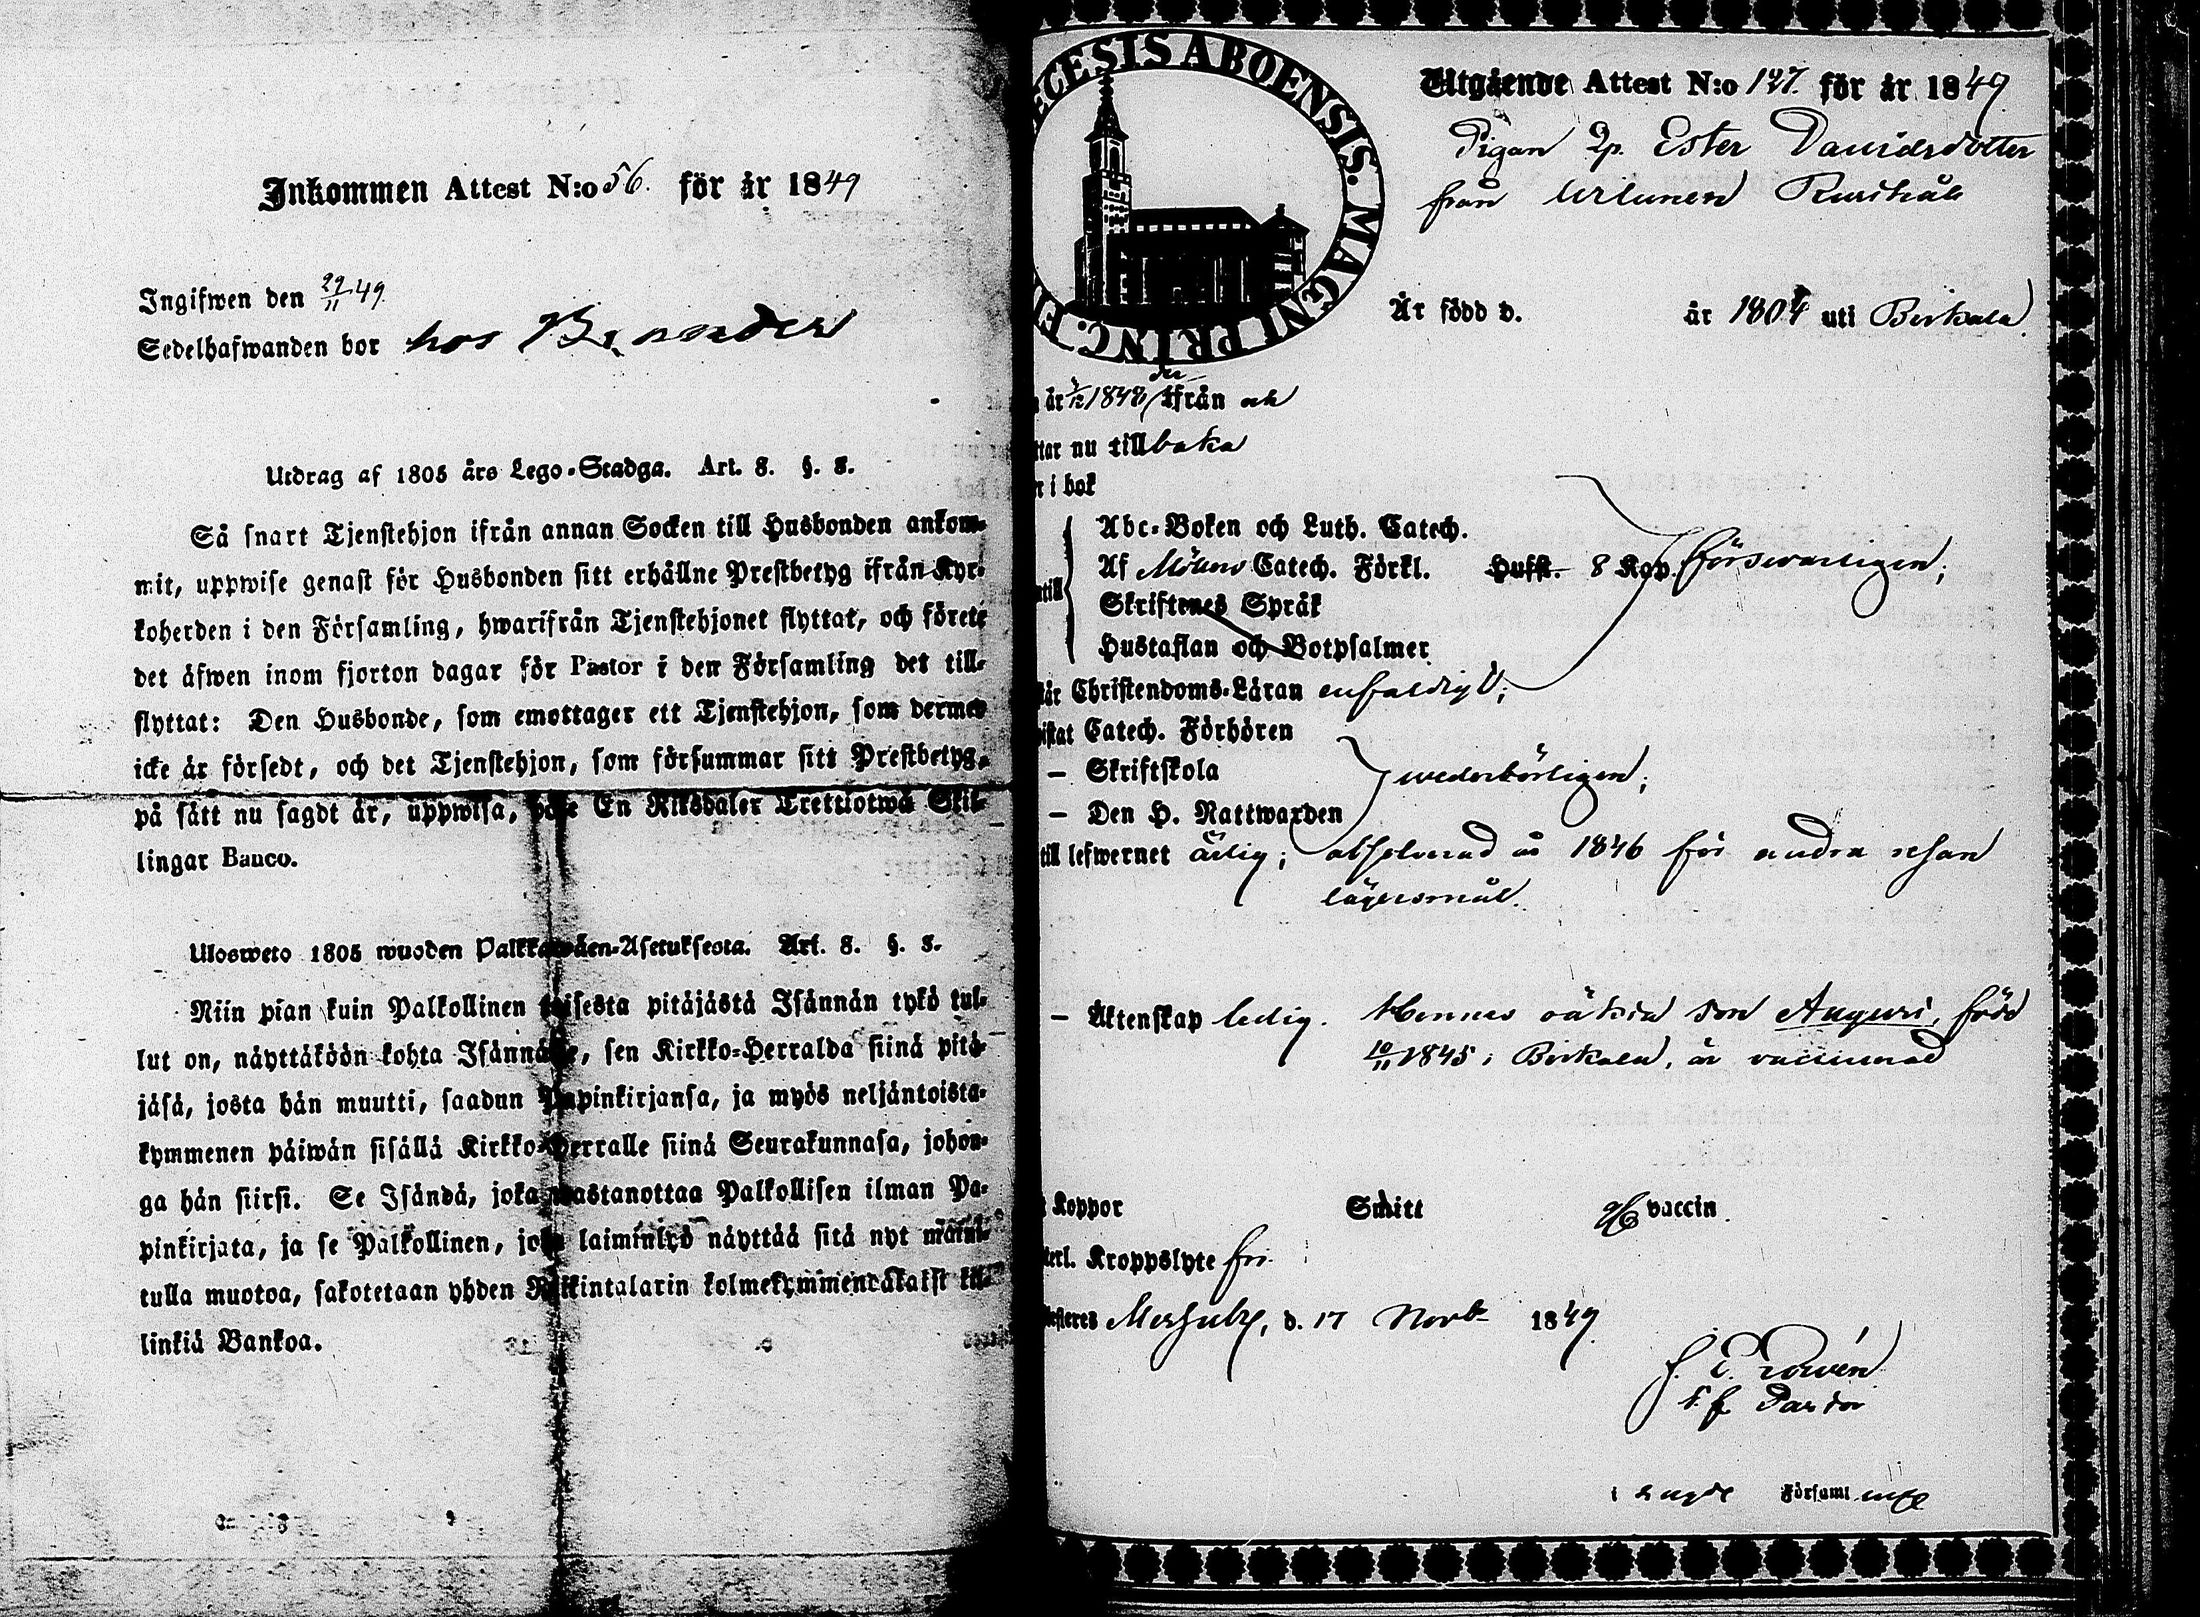 Inkommen Attest N:o 56. för år 1849
Ingifwen den 29/11 49.
Sedelhafwanden bor hos Brander
Utdrag af 1805 års Lego-Stadga. Art. 8. §. 8.
Så snart Tjenstehjon ifrån annan Socken till Husbonden ankom-
mit, uppwise genast för Husbonden sitt erhållne Prestbetyg ifrån Kyr-
koherden i den Församling, hwarifrån Tjenstehjonet flyttat, och förete
det äfwen inom fjorton dagar för Pastor i den Församling det till-
flyttat: Den Husbonde, som emottager ett Tjenstehjon, som dermed
icke är försedt, och det Tjenstehjon, som försummar sitt Prestbetyg,
på sätt nu sagdt är, uppwisa, böte En Riksdaler Trettiotwå Skil-
lingar Banco.
Ulosweto 1805 wuoden Palkkawäen-Asetuksesta. Art. 8. §. 8.
Niin pian kuin Palkollinen toisesta pitäjästä Isännän tykö tul-
lut on, näyttäköön kohta Isännälle, sen Kirkko-Herralda siinä pitä-
jäsä, josta hän muutti, saadun Papinkirjansa, ja myös neljäntoista-
kymmenen päiwän sisällä Kirkko-Herralle siinä Seurakunnasa, johon-
ga hän siirsi. Se Isändä, joka wastanottaa Palkollisen ilman Pa-
pinkirjata, ja se Palkollinen, joka laiminlyö näyttää sitä nyt mainit-
tulla muotoa, sakotetaan yhden Riikintalarin kolmekymmendäkaksi kil-
linkiä Bankoa.
ECESIS ABOENSIS. MAGNI PRINC. F
Utgående Attest N:o 127. för år 1849
Pigan Ester Davidsdotter
från Urlunen Rusthåll
Är född d. år 1804 uti Birkala
år 1/12 1848 der ifrån och
ttar nu tillbaka
r i bok
Abc-Boken och Luth. Catech.
Af Möllers Catech. Förkl. Hufst. 8 Kap. försvarligen;
ntill
Skriftenes Språk
Hustaflan och Botpsalmer
tår Christendoms-Läran enfaldigt;
istat Catech. Förhören
— Skriftskola wederbörligen;
— Den H. Nattwarden
till lefwernet ärlig; absolverad år 1846 för andra resan
lägersmål.
— Äktenskap ledig. Hennes oäkta son August, född
10/11 1845 i Birkala, är vaccinerad
Koppor Smitt vaccin
derl. Kroppslyte fri.
esteres Messuby, d. 17 Novbr 1849.
t. f. Pastor
i sagde Församling